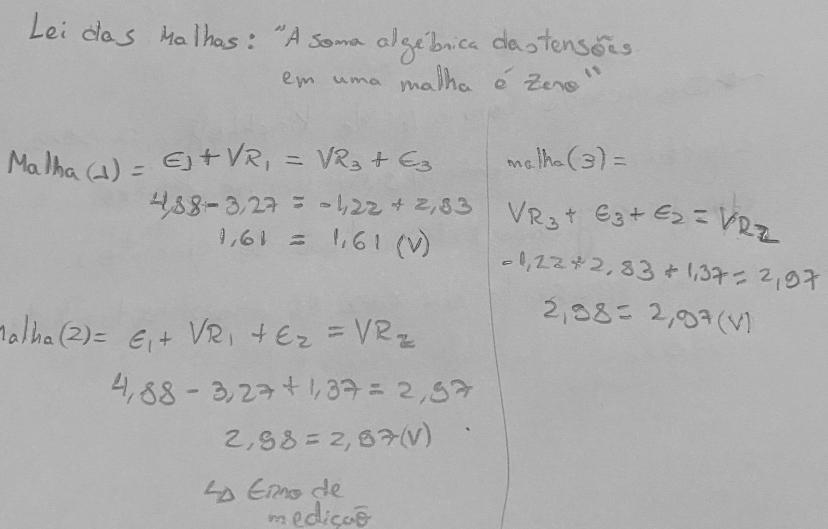 Lei das Malhas: "A soma algébrica das tensões
em uma malha é Zero"
Malha (1) = Є1 + VR1 = VR3 + Є3
4,88 - 3,27 = -1,22 + 2,83
1,61 = 1,61 (V)
malha (2) = Є1 + VR1 + Є2 = VR2
4,88 - 3,27 + 1,37 = 2,97
2,98 = 2,97 (V)
↳ Erro de
medição
malha (3) =
VR3 + Є3 + Є2 = VR2
-1,22 + 2,83 + 1,37 = 2,97
2,98 = 2,97 (V)